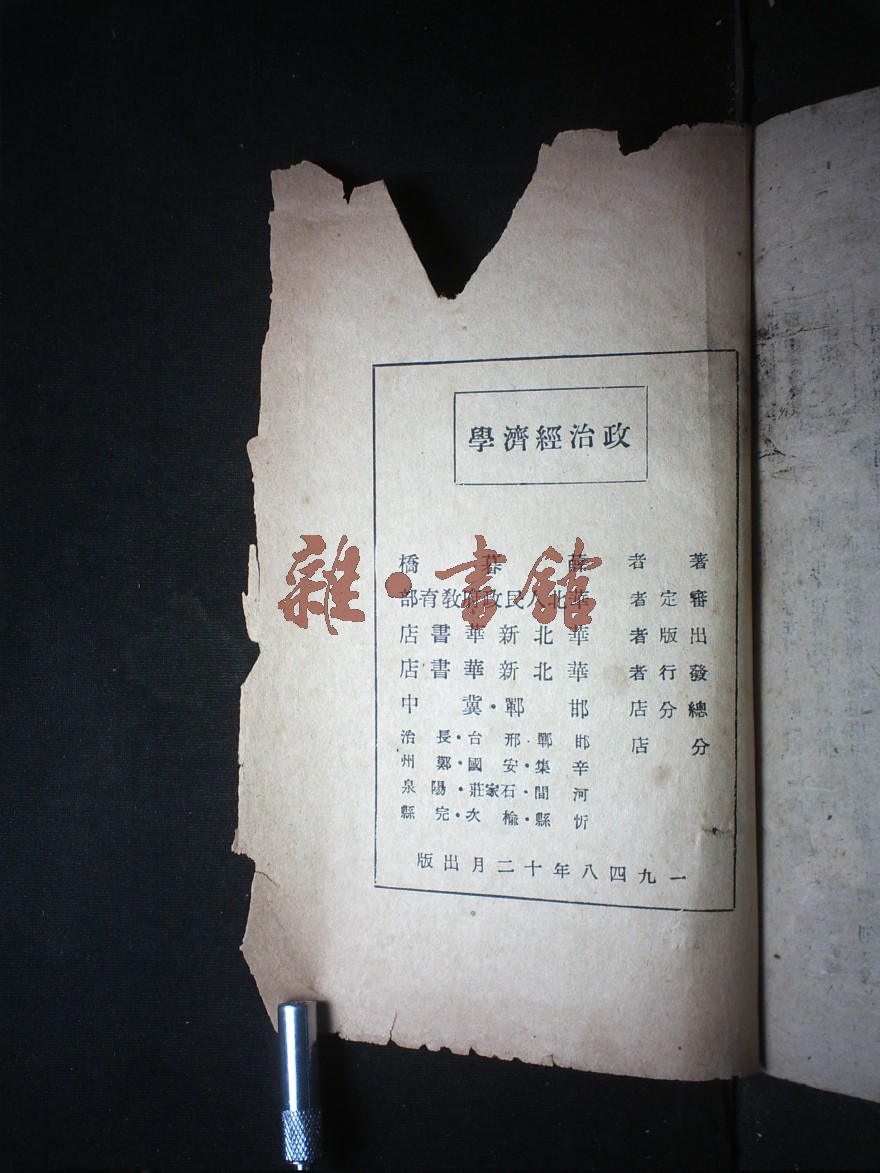 政治經濟學
著者 薛暮橋
審定者 華北人民政府教育部
出版者 華北新華書店
發行者 華北新華書店
總分店 邯鄲·冀中
分店 邯鄲·邢台·長治
辛集·安國·鄭州
河間·石家莊·陽泉
忻縣·榆次·完縣
一九四八年十二月出版
雜·書館